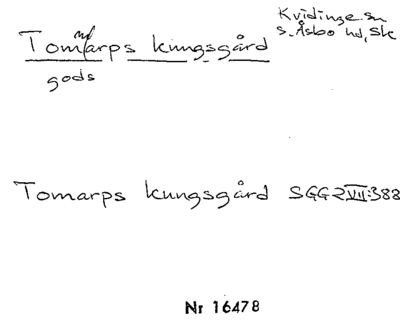 Tommarps kungsgård
Kvidinge sn
S. Åsbo hd, Sk
gods
Tomarps kungsgård SGG2VII:388
Nr 16478